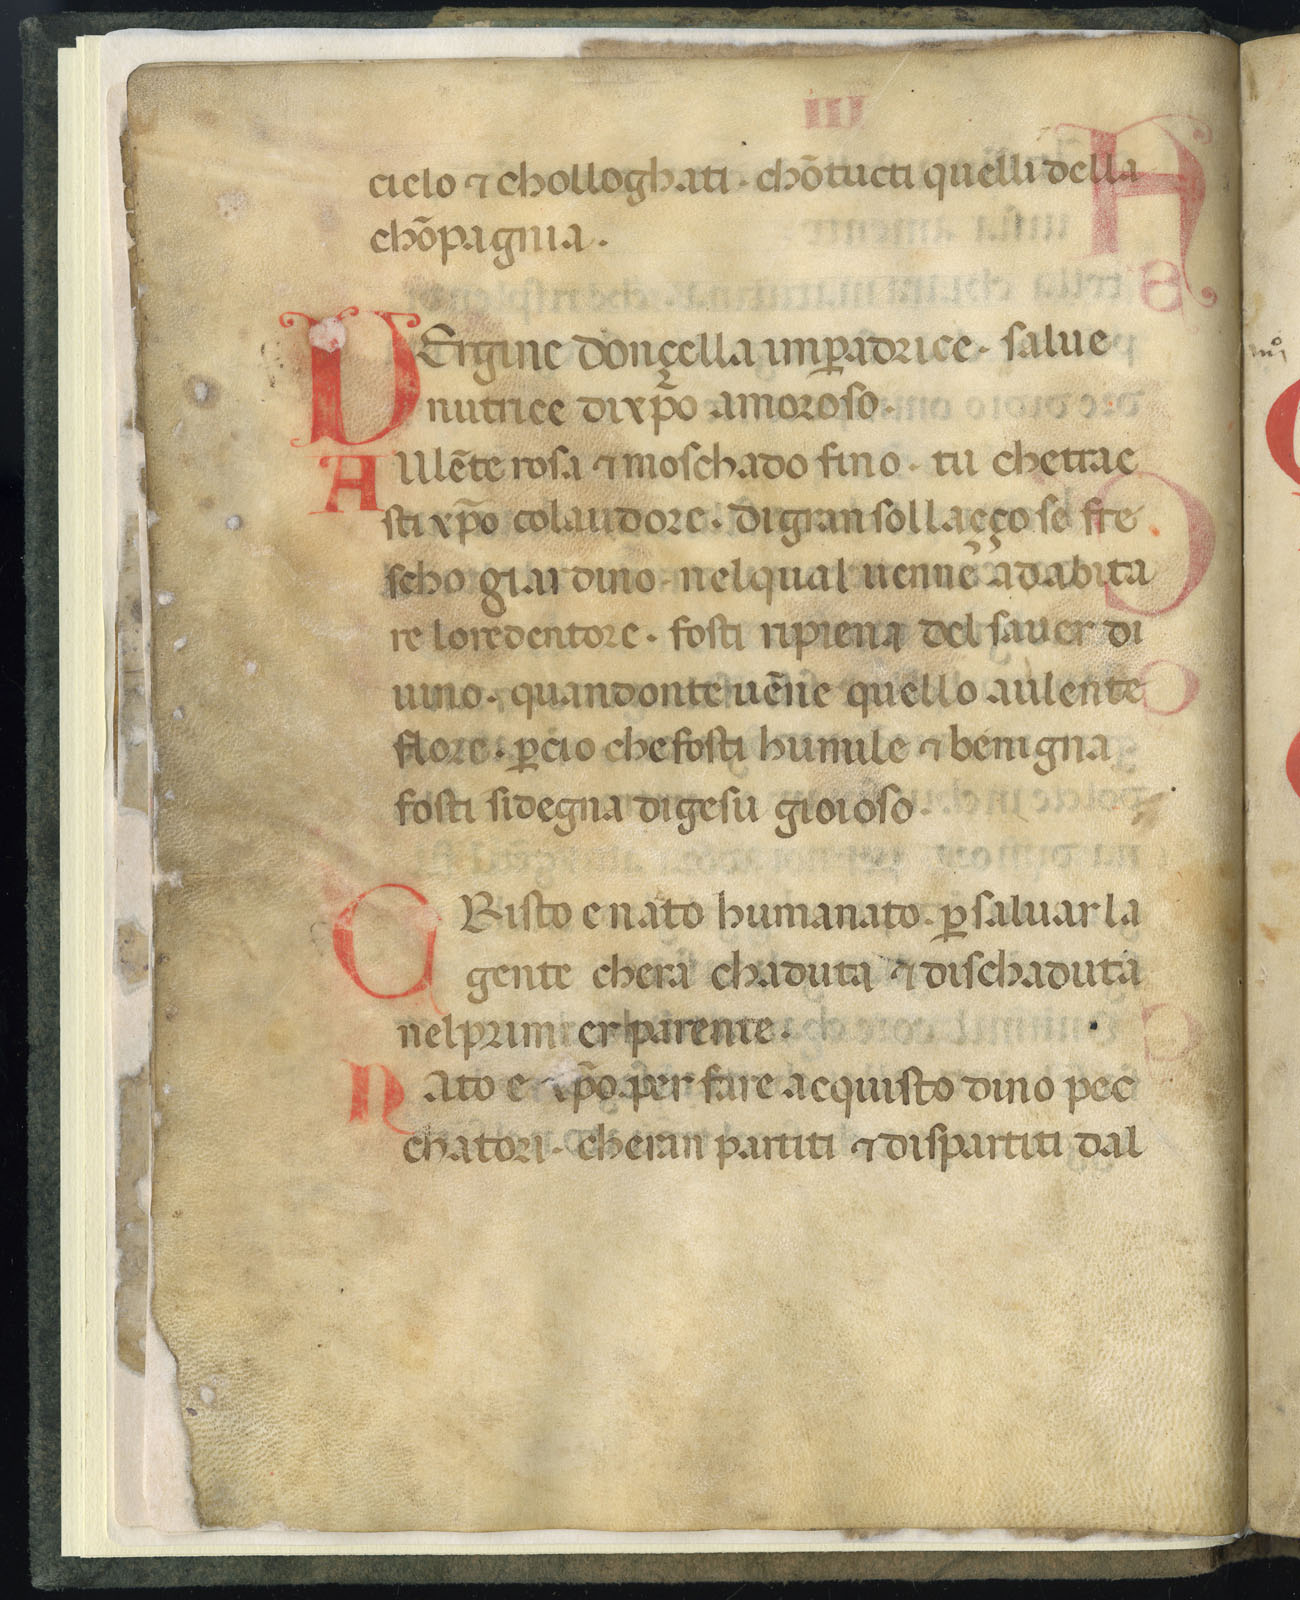 cielo ⁊ cholloghati · chōtucti quelli della
chōpagnia ·
VErgine donçella imꝑadrice · salue
nutrice dixp̄o amoroso ·
AUlēte rosa ⁊ moschado fino · tu chettrae
sti xp̄o colaudore · digran sollaçço se fre
scho giardino · nelqual uenne adabita
re loredentore · fosti ripiena del sauer di
uino · quandonte uēne quello aulente
fiore · ꝑcio chefosti humile ⁊ benigna
fosti sidegna digesu gioioso ·
CRisto e nato humanato · ꝑ saluar la
gente chera chaduta ⁊ dischaduta
nelprimer parente ·
NAto e xp̄o per fare acquisto dino pec
chatori · cheran partiti ⁊ dispartiti dal